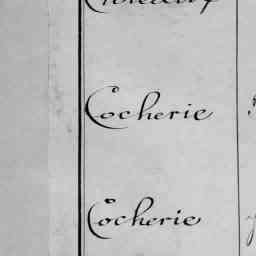 Cocherie
Cocherie